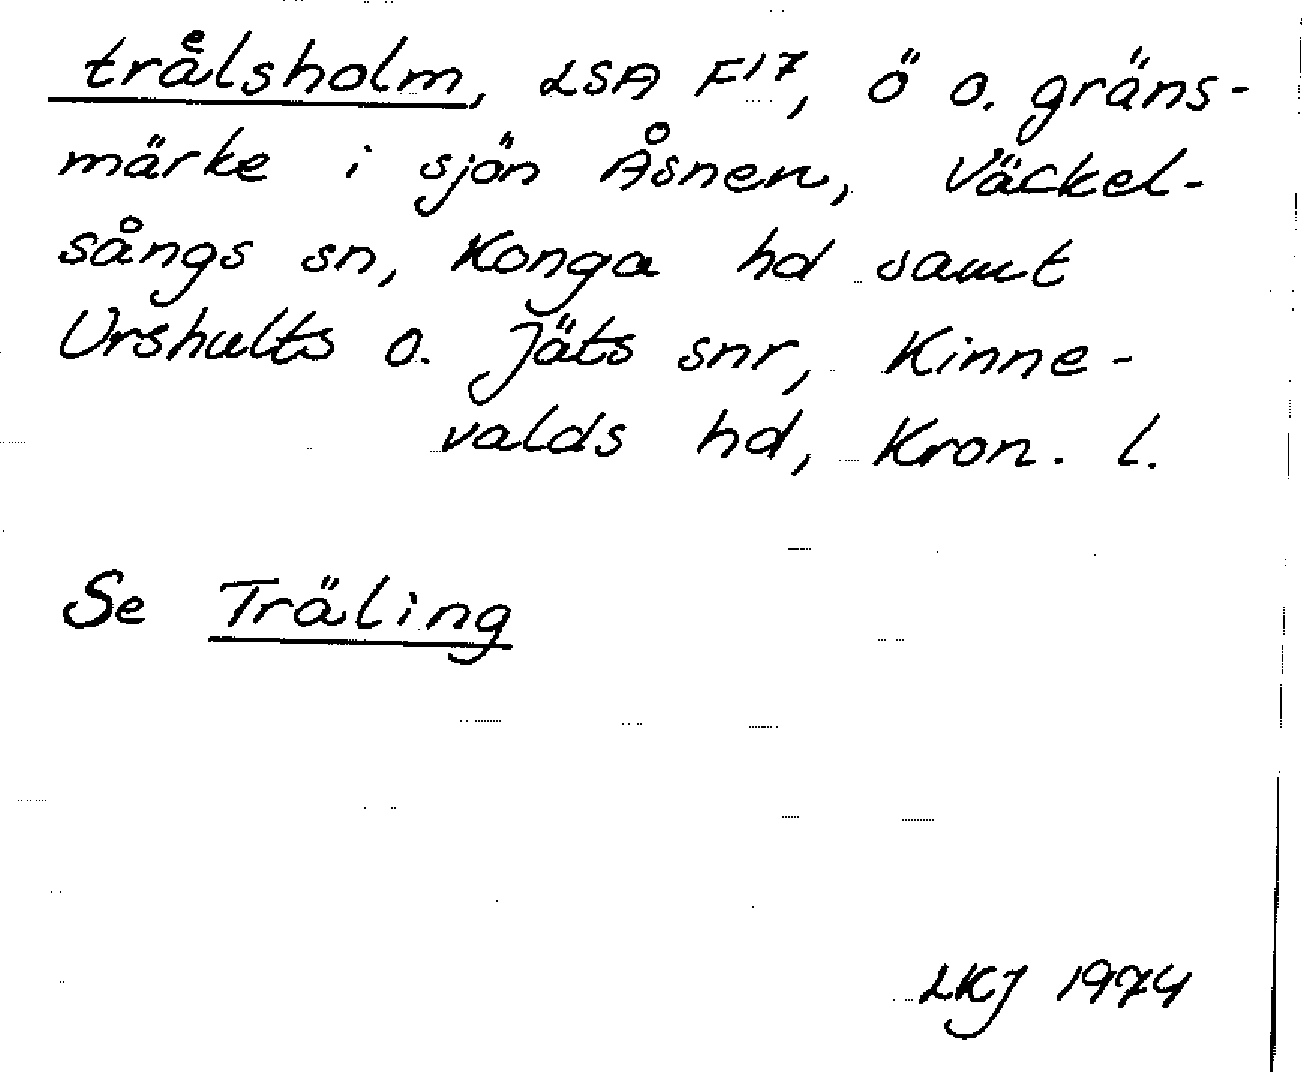 traͤlsholm, LSA F17, ö o. gräns-
märke i sjön Åsnen, Väckel-
sångs sn, Konga hd samt
Urshults o. Jäts snr, Kinne-
valds hd, Kron. l.
Se Träling
LKJ 1974